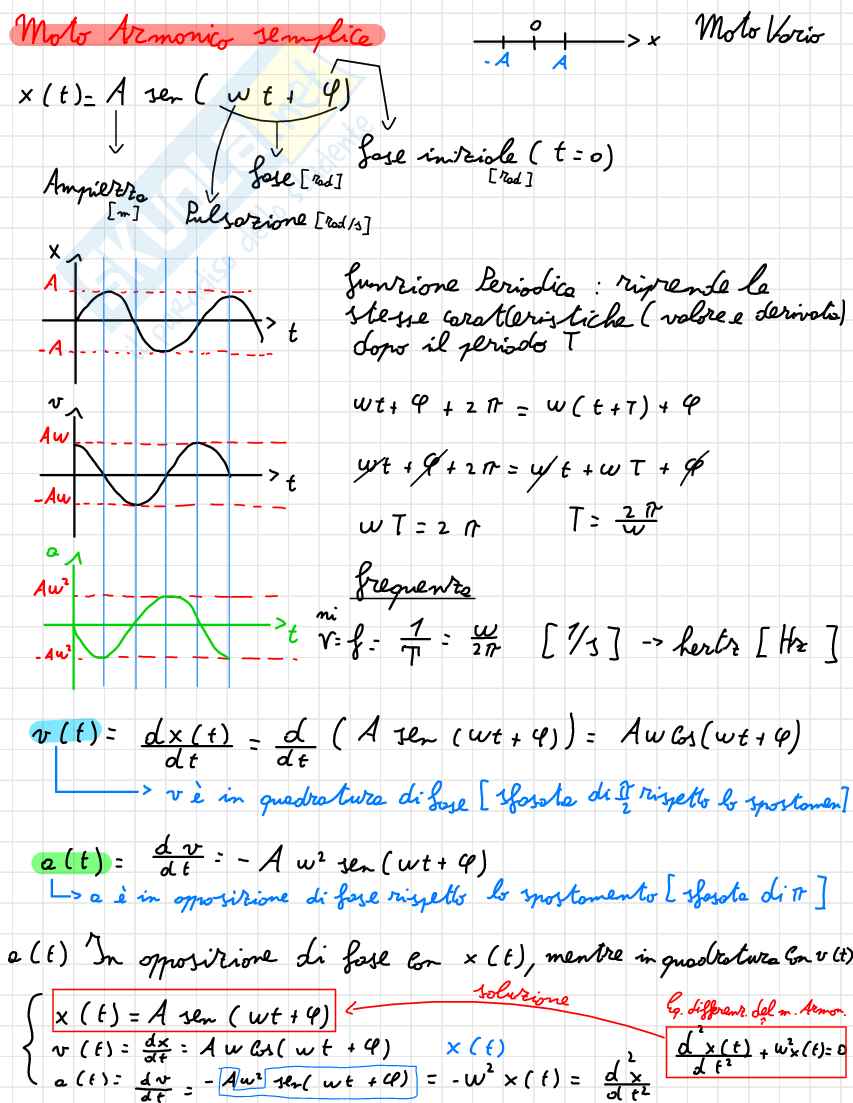 Moto Armonico semplice
Moto Vario
-A 0 A x
x(t) = A sen (ωt + φ)
fase iniziale (t=0)
[rad]
fase [rad]
Ampiezza
[m]
Pulsazione [rad/s]
SKUOLA.net
x
A
-A
t
Funzione Periodica : riprende le
stesse caratteristiche (valore e derivata)
dopo il periodo T
v
Aω
-Aω
t
ωt + φ + 2π = ω(t+T) + φ
ωt + φ + 2π = ωt + ωT + φ
ωT = 2π T = 2π/ω
a
Aω²
-Aω²
t
frequenza
ni
ν = f = 1/T = ω/2π [1/s] → hertz [Hz]
v(t) = dx(t)/dt = d/dt (A sen (ωt + φ)) = Aω cos(ωt + φ)
→ v è in quadratura di fase [sfasata di π/2 rispetto lo spostamen]
a(t) = dv/dt = - A ω² sen(ωt + φ)
→ a è in opposizione di fase rispetto lo spostamento [sfasata di π]
a(t) In opposizione di fase con x(t), mentre in quadratura con v(t)
soluzione
Eq. differenz. del m. Armon.
x(t) = A sen (ωt + φ)
d²x(t)/dt² + ω²x(t) = 0
v(t) = dx/dt = Aω cos(ωt + φ) x(t)
a(t) = dv/dt = - Aω² sen(ωt + φ) = -ω² x(t) = d²x/dt²